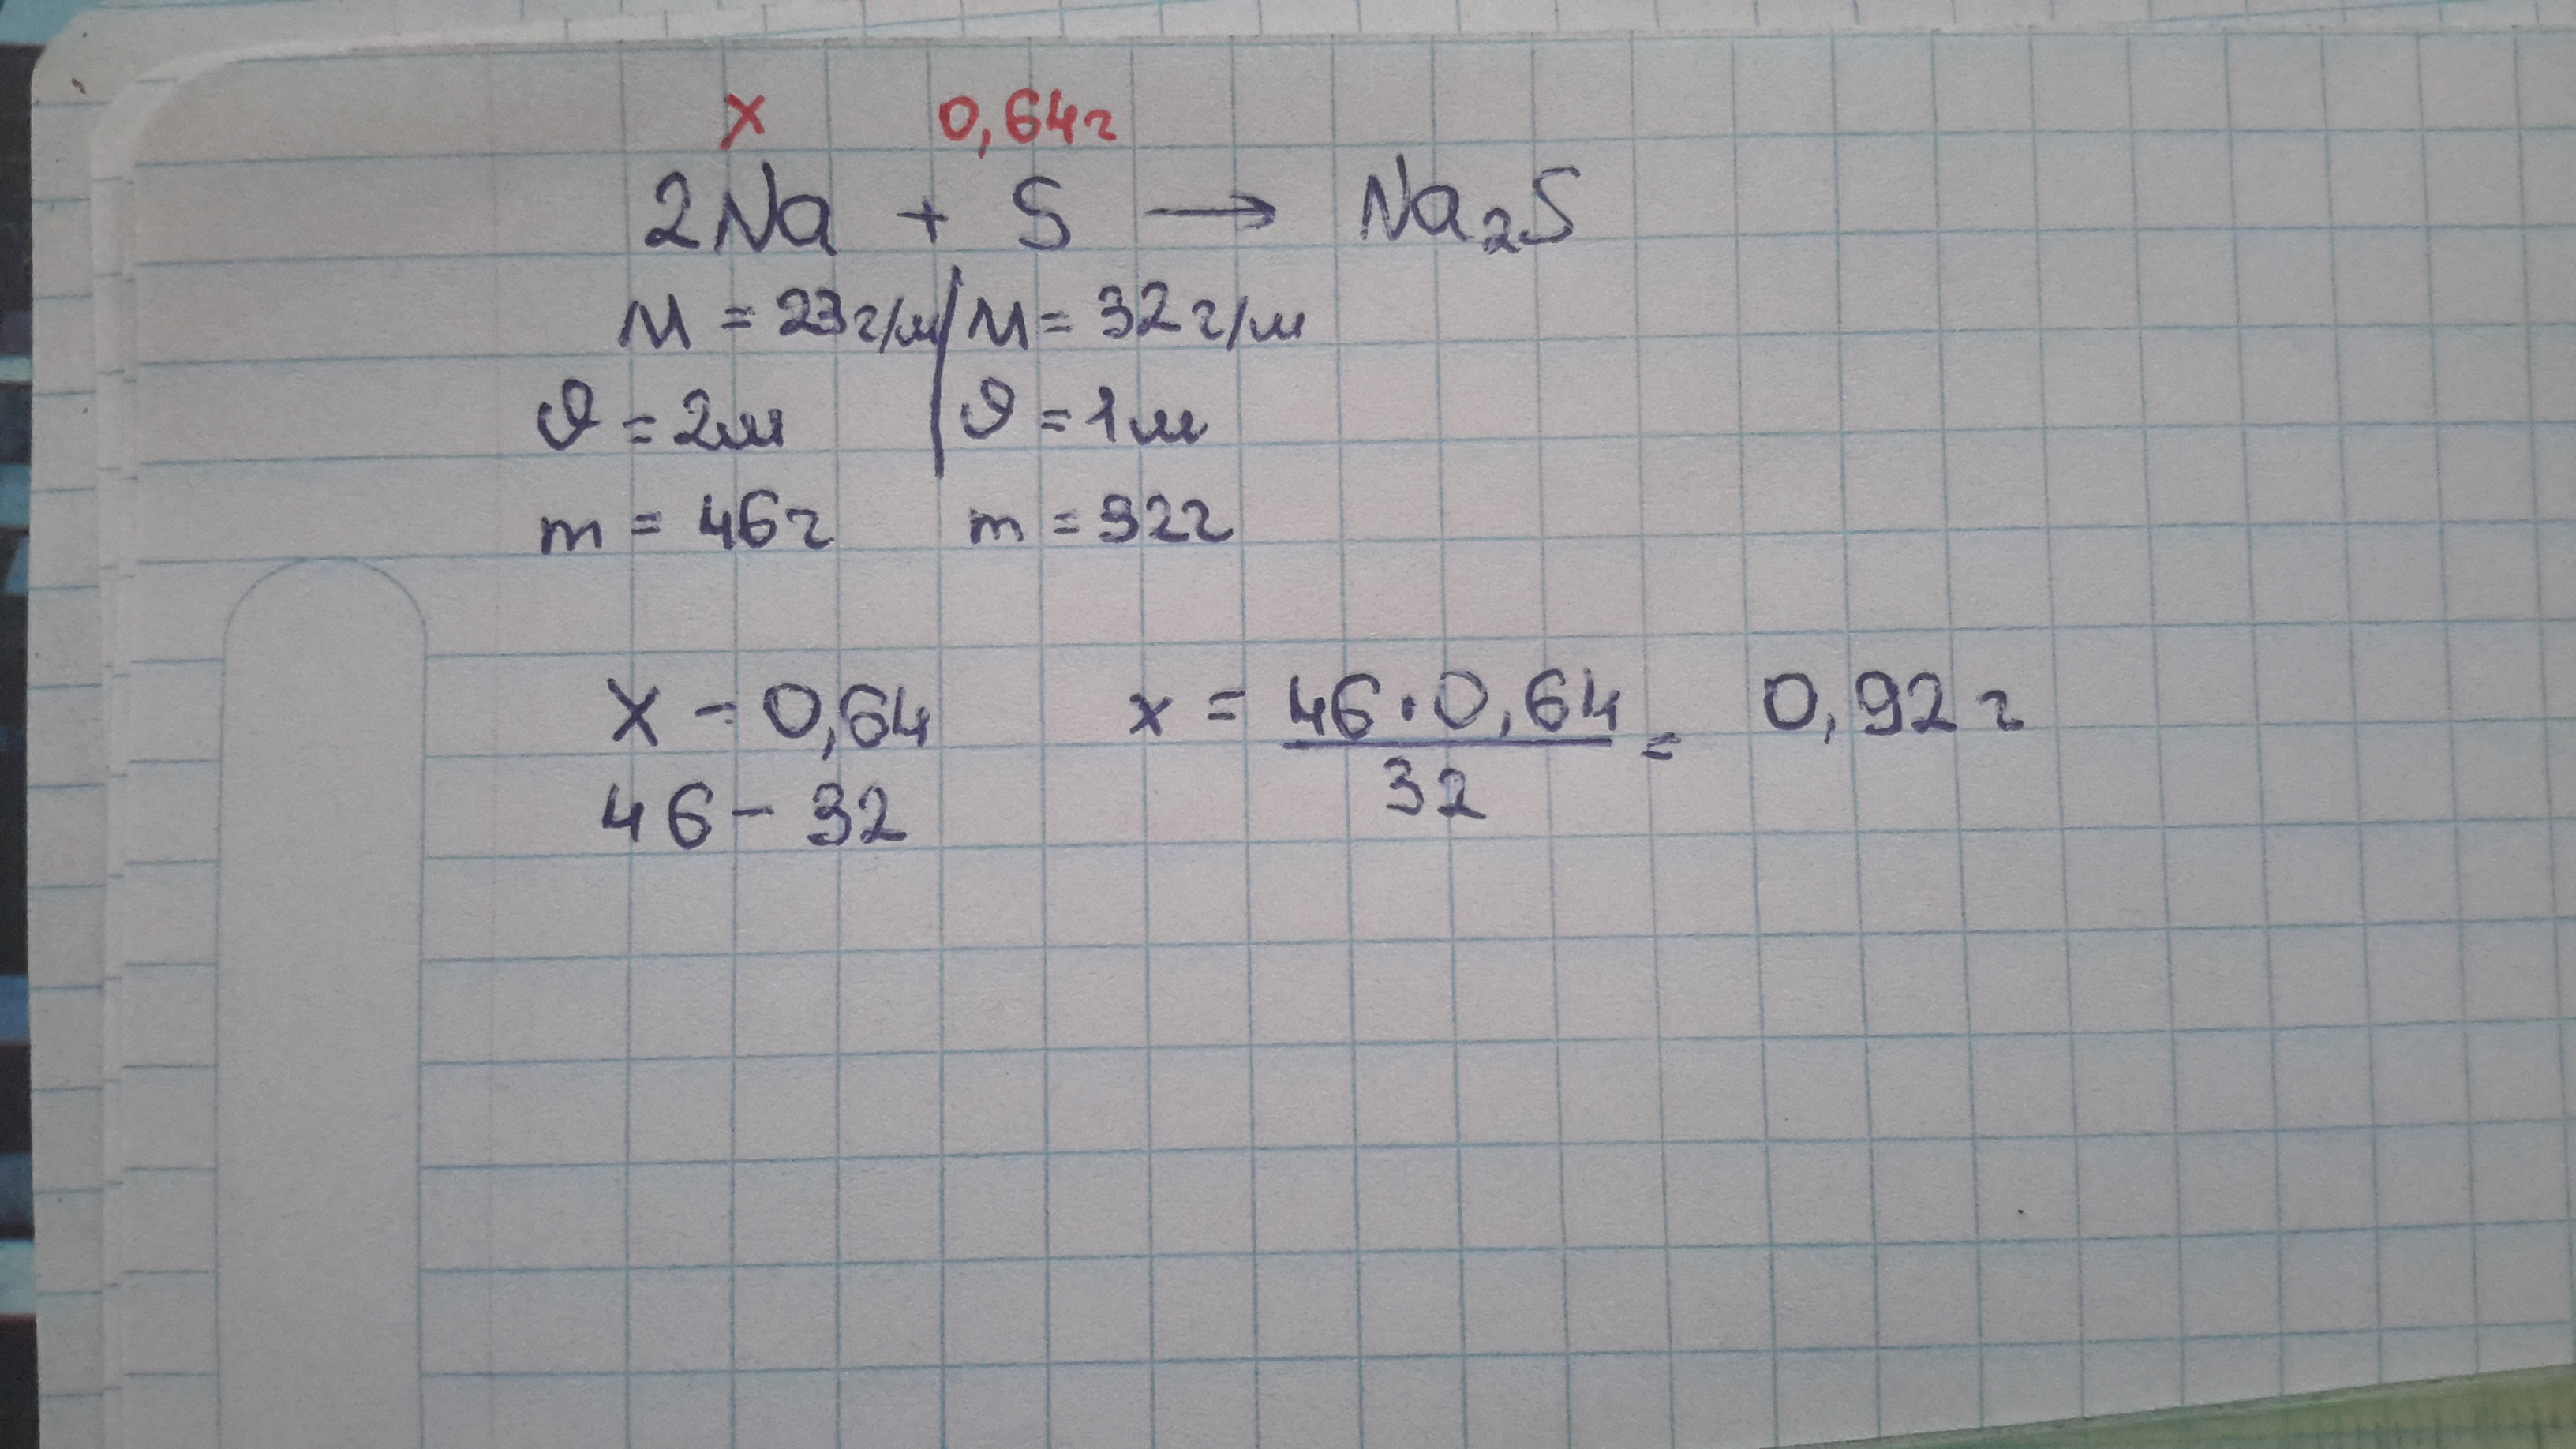 x 0,64г
2Na + S → Na₂S
M = 23г/м / M = 32г/м
ϑ = 2м ϑ = 1м
m = 46г m = 32г
x - 0,64 x = 46·0,64 = 0,92г
46 - 32 32